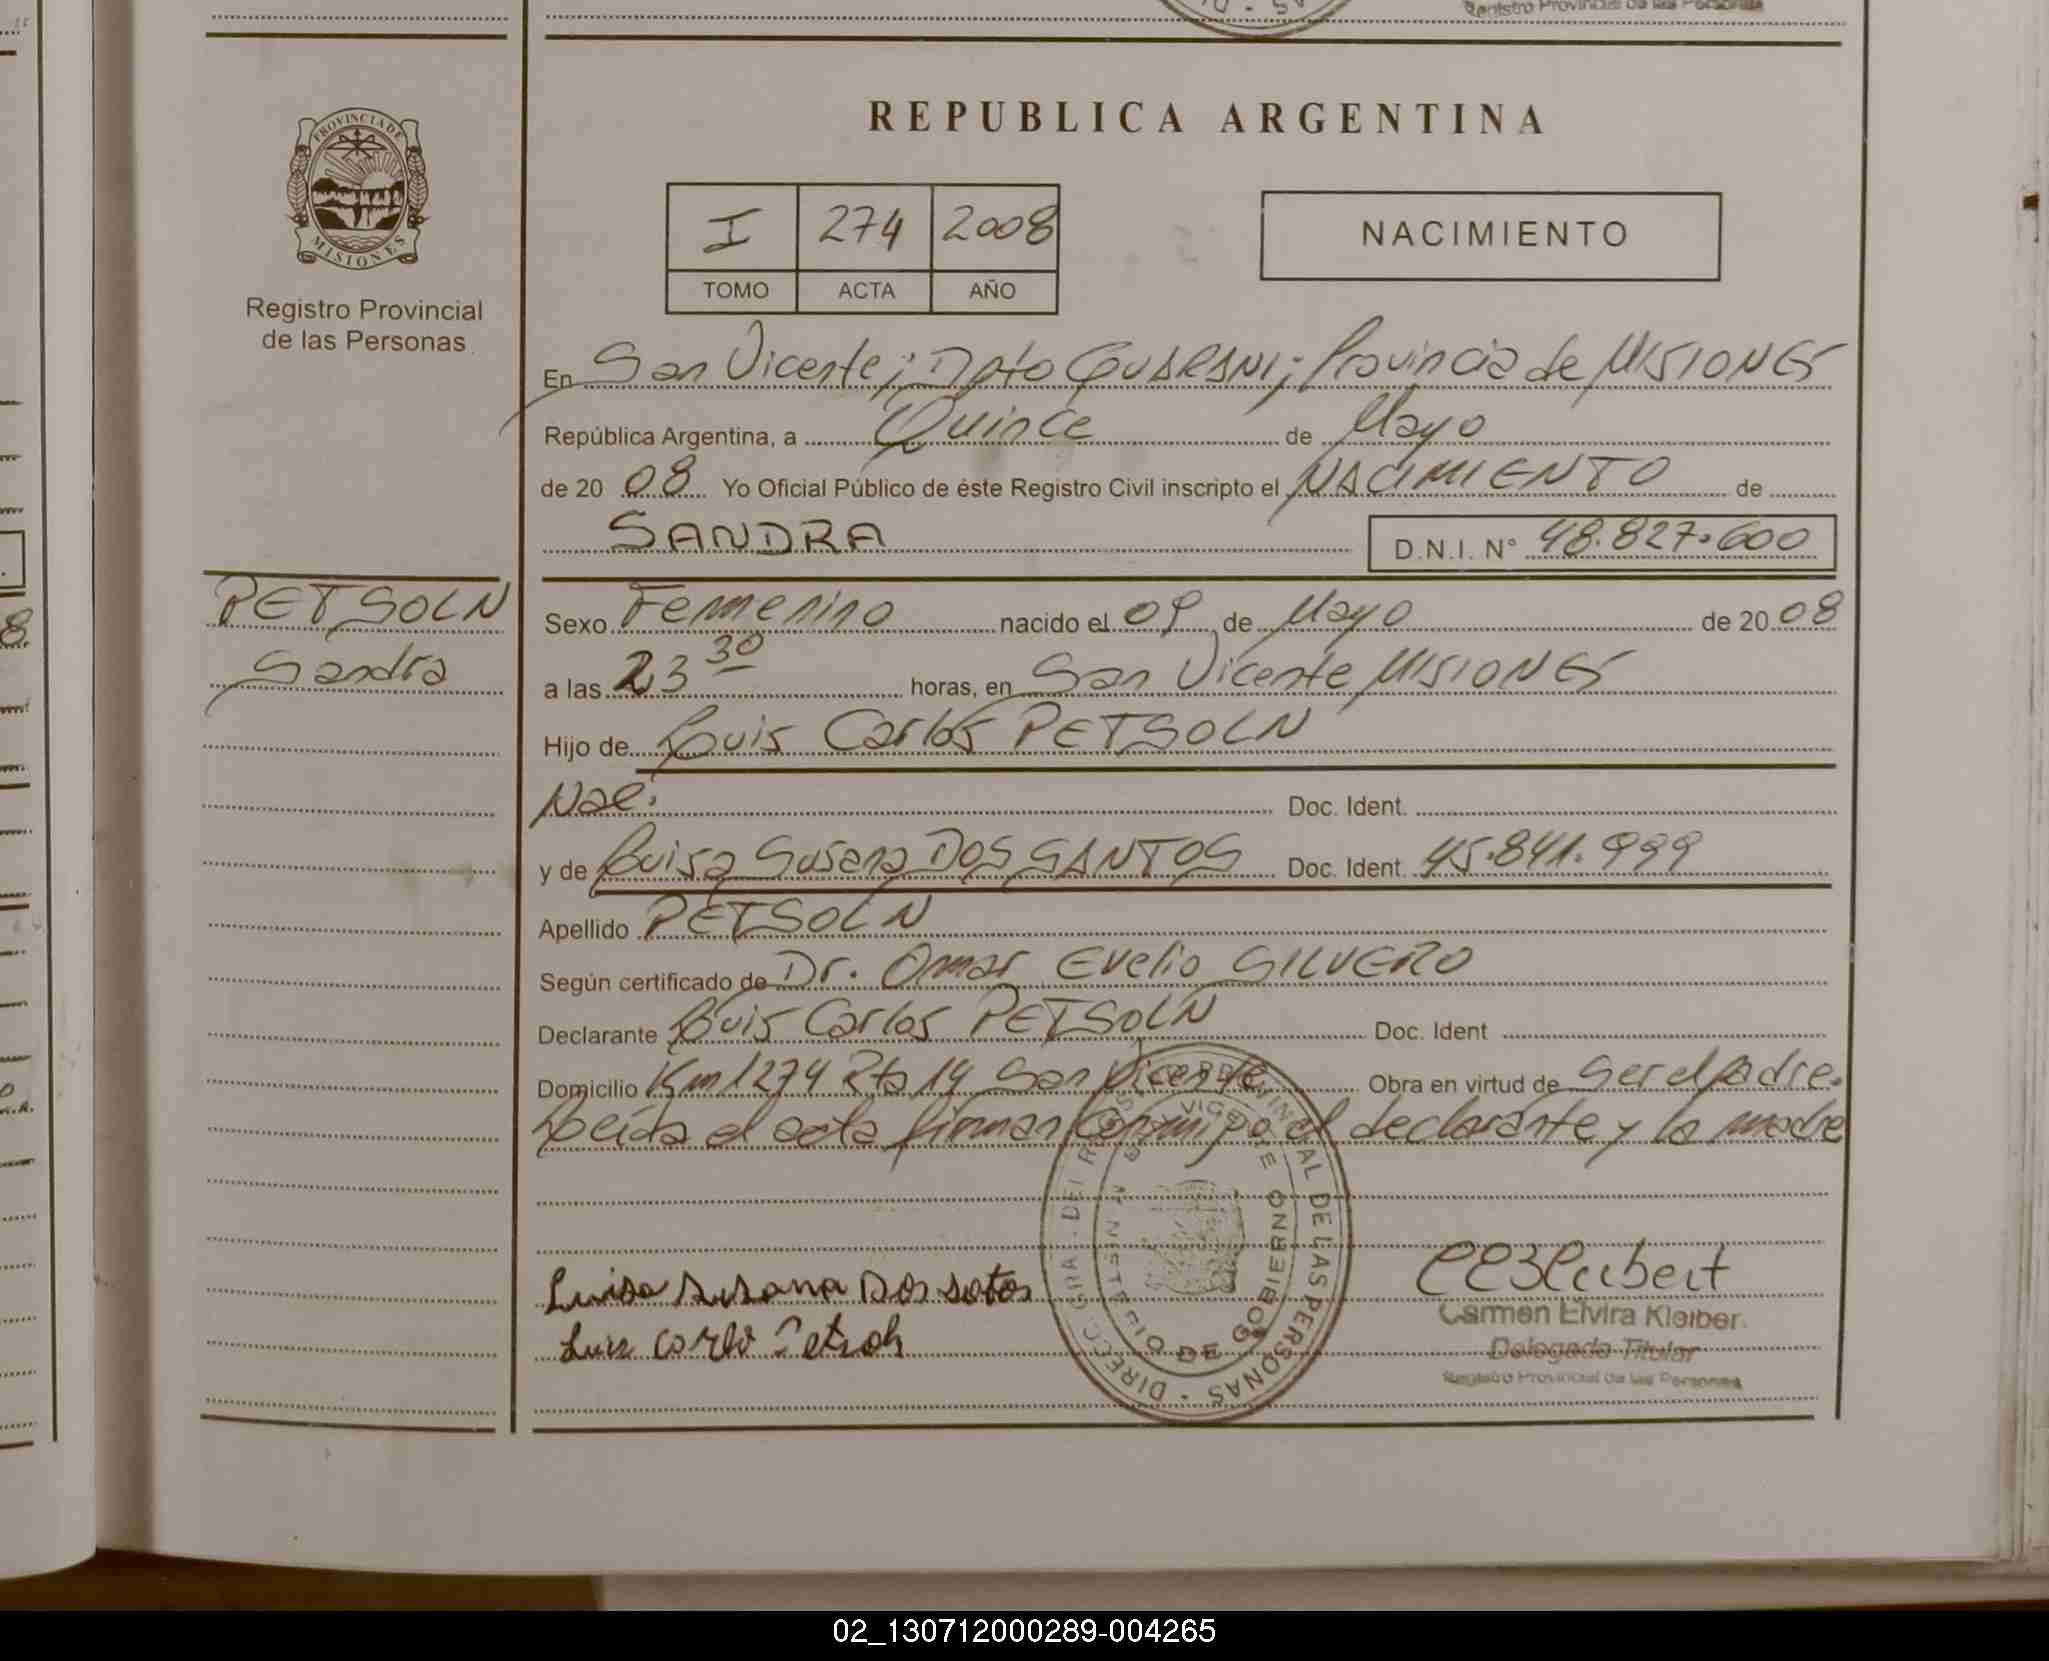 Registro Provincial de las Personas
REPUBLICA ARGENTINA
PROVINCIA DE
MISIONES
Registro Provincial
de las Personas
I 274 2008
TOMO ACTA AÑO
NACIMIENTO
En San Vicente; Dpto GUARANI; Provincia de MISIONES
República Argentina, a Quince de Mayo
de 20 08 Yo Oficial Público de éste Registro Civil inscripto el NACIMIENTO de
SANDRA D.N.I. N° 48.827.600
PETSOLN
Sandra
Sexo Femenino nacido el 09 de Mayo de 20 08
a las 23 30 horas, en San Vicente MISIONES
Hijo de Luis Carlos PETSOLN
Nac. Doc. Ident.
y de Luisa Susana DOS SANTOS Doc. Ident. 45.841.999
Apellido PETSOLN
Según certificado de Dr. Omar Evelio SILVERO
Declarante Luis Carlos PETSOLN Doc. Ident
Domicilio Km 1274 Rta 14 San Vicente Obra en virtud de Ser el padre.
Leída el acta firman conmigo el declarante y la madre
DIRECC. GRAL. DEL REGISTRO PROVINCIAL DE LAS PERSONAS
MINISTERIO DE GOBIERNO
Luisa Susana Dos satos
Luis Carlo Petsoln
Carmen Elvira Kleiber
Delegada Titular
Registro Provincial de las Personas
02_130712000289-004265